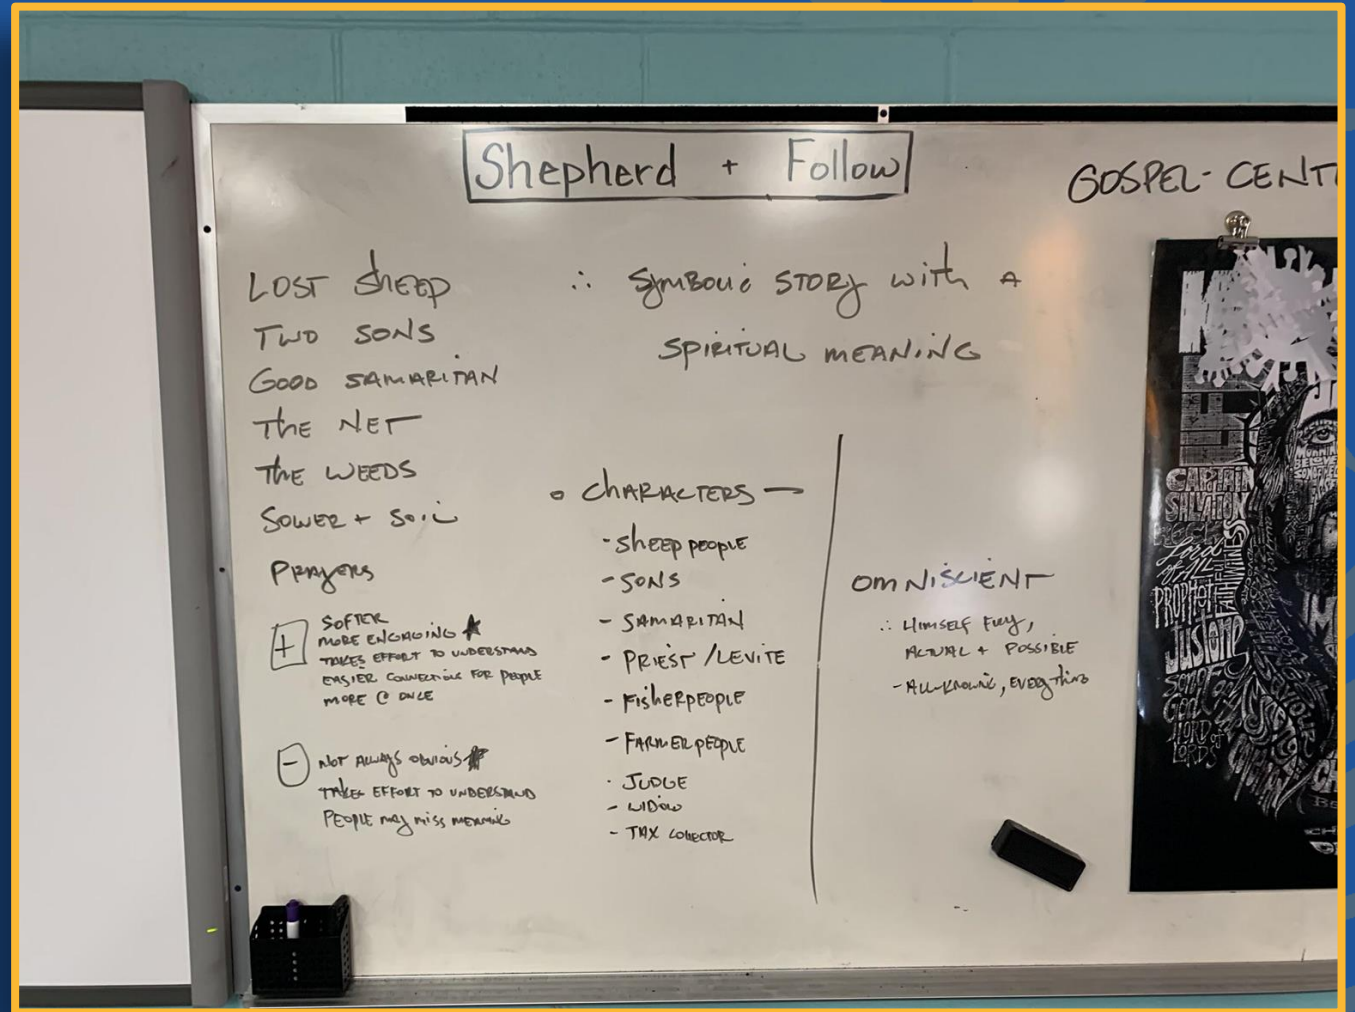 Shepherd + Follow
GOSPEL-CENT
LOST SHEEP
TWO SONS
GOOD SAMARITAN
THE NET
THE WEEDS
SOWER + SOIL
PRAYERS
+ SOFTER
MORE ENGAGING ★
TAKES EFFORT TO UNDERSTAND
EASIER CONNECTIONS FOR PEOPLE
MORE @ ONCE
- NOT ALWAYS OBVIOUS ★
TAKES EFFORT TO UNDERSTAND
PEOPLE MAY MISS MEANING
∴ SYMBOLIC STORY WITH A
SPIRITUAL MEANING
CHARACTERS —
- SHEEP PEOPLE
- SONS
- SAMARITAN
- PRIEST / LEVITE
- FISHERPEOPLE
- FARMER PEOPLE
- JUDGE
- WIDOW
- TAX COLLECTOR
OMNISCIENT
∴ HIMSELF FULLY,
ACTUAL + POSSIBLE
- ALL-KNOWING, EVERYTHING
CAPTAIN
SALVATION
Lord
of ALL
PROPHET
FAITHFULNESS
LORD OF
LORDS